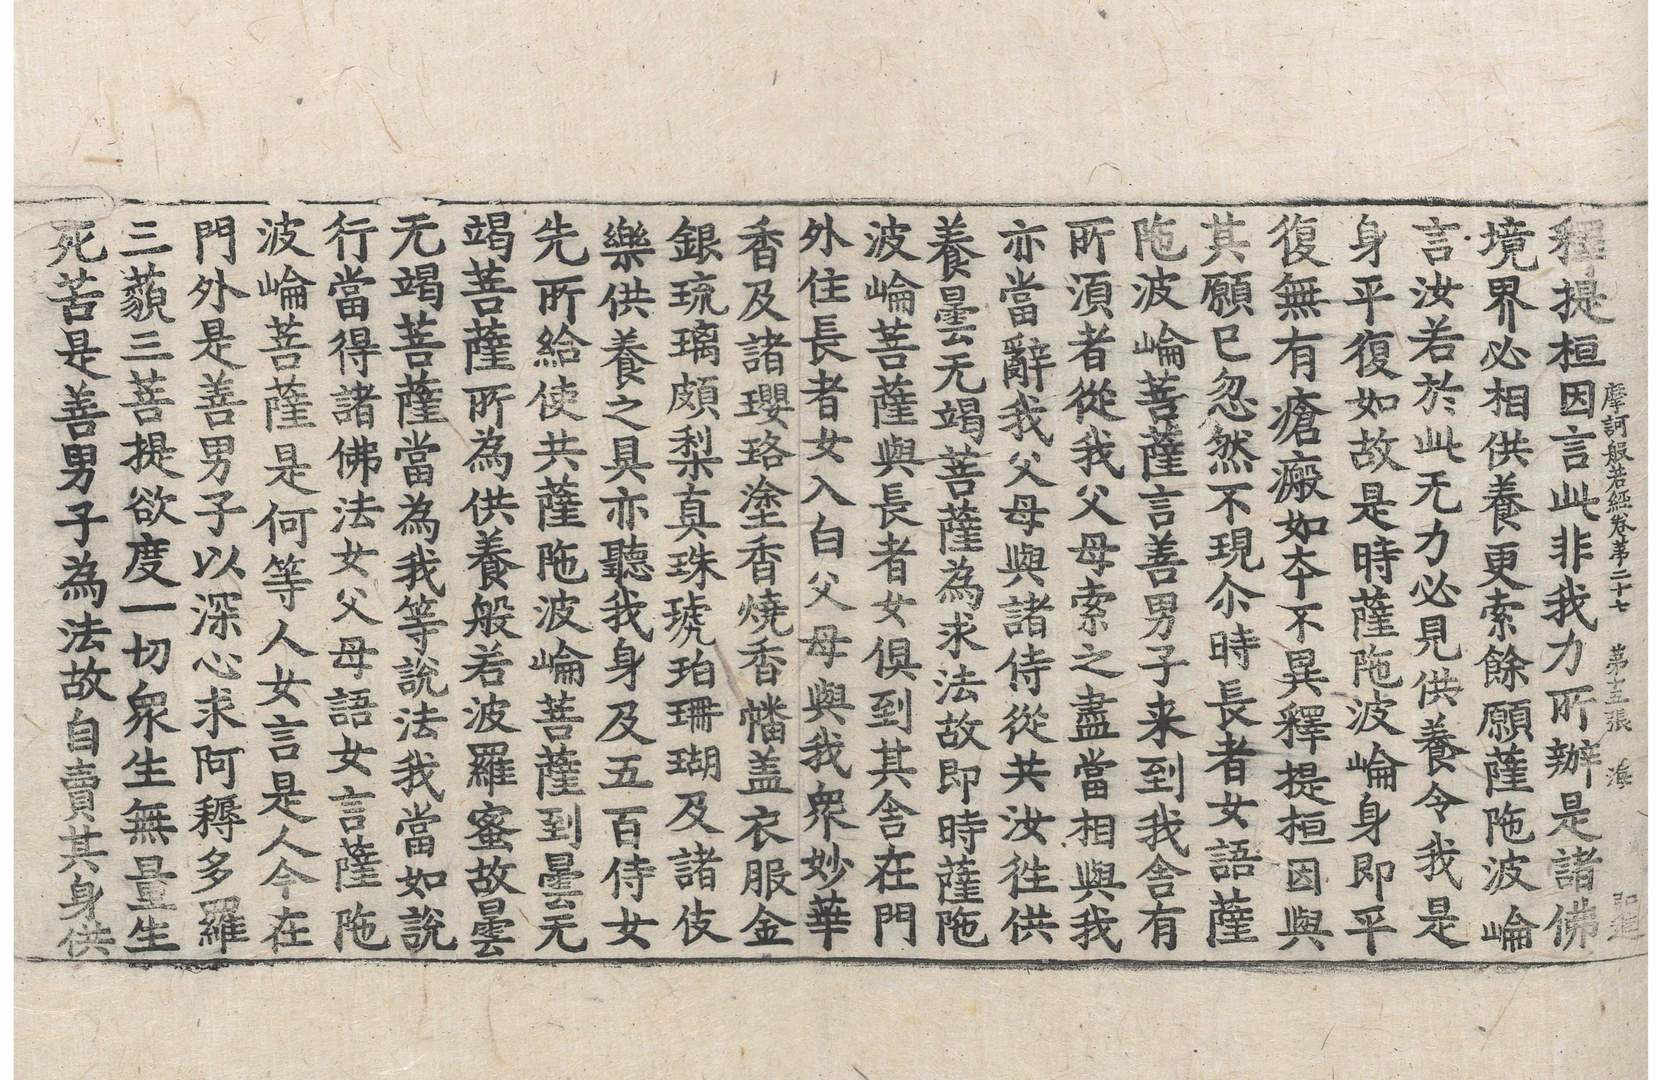 摩訶般若經卷第二十七 第十五張 海
釋提桓因言此非我力所辦是諸佛
境界必相供養更索餘願薩陁波崘
言汝若於此无力必見供養令我是
身平復如故是時薩陁波崘身即平
復無有瘡瘢如本不異釋提桓因與
其願已忽然不現尒時長者女語薩
陁波崘菩薩言善男子来到我舍有
所湏者從我父母索之盡當相與我
亦當辭我父母與諸侍從共汝徃供
養曇无竭菩薩為求法故即時薩陁
波崘菩薩與長者女俱到其舍在門
外住長者女入白父母與我衆妙華
香及諸瓔珞塗香燒香幡盖衣服金
銀琉璃頗梨真珠琥珀珊瑚及諸伎
樂供養之具亦聽我身及五百侍女
先所給使共薩陁波崘菩薩到曇无
竭菩薩所為供養般若波羅蜜故曇
无竭菩薩當為我等說法我當如說
行當得諸佛法女父母語女言薩陁
波崘菩薩是何等人女言是人今在
門外是善男子以深心求阿耨多羅
三藐三菩提欲度一切衆生無量生
死苦是善男子為法故自賣其身供